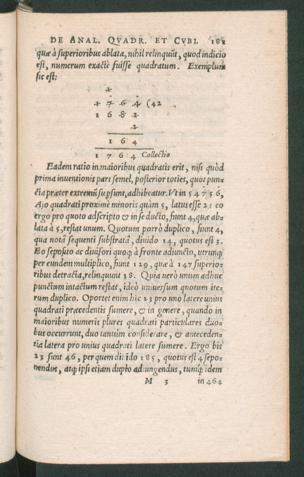 DE ANAL. QVADR. ET CVBI.
quæ à superioribus ablata, nihil relinquũt, quod indicio
est, numerum exactè fuisse quadratum. Exemplum
sic est:
1 7 6 4 (42
1 6 8 2
2
1 6 4
1 7 6 4 Collectio
Eadem ratio in maioribus quadratis erit, nisi quòd
prima inuentionis pars semel, posterior toties, quot pun
cta præter extremũ supsunt, adhibeatur. Vt in 5 4 7 5 6,
Aio quadrati proximè minoris quàm 5, latus esse 2: eo
ergo pro quoto adscripto & in se ducto, fiunt 4, quæ ab
lata à 5, restat unum. Quotum porrò duplico, fiunt 4,
qua nota sequenti substrata, diuido 14, quotus est 3.
Eo seposito ac diuisori quoq; à fronte adiuncto, utrunq;
per eundem multiplico, fiunt 129, quæ à 147 superior
ribus detracta, relinquunt 18. Quia verò unum adhuc
punctum intactum restat, ideò uniuersum quotum ite
rum duplico. Oportet enim hîc 23 pro uno latere unius
quadrati præcedentis sumere, & in genere, quando in
maioribus numeris plures quadrati particulares duo
bus occurrunt, duo tantùm considerare, & anteceden
tia latera pro unius quadrati latere sumere. Ergo bis
23 sunt 46, per quem diuido 185, quotus est 4 sepo
nendus, atq; ipsi etiam duplo adiungendus, tumq; idem
M 3 in 464